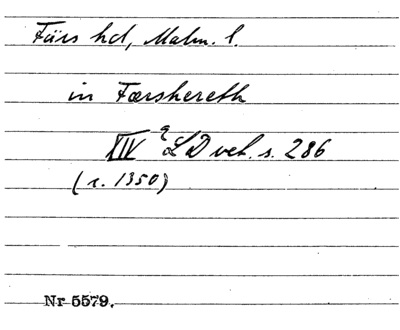 Färs hd, Malm. l.
in Færshereth
XIV 2 LD vet. s. 286
(c. 1350)
Nr 5579.